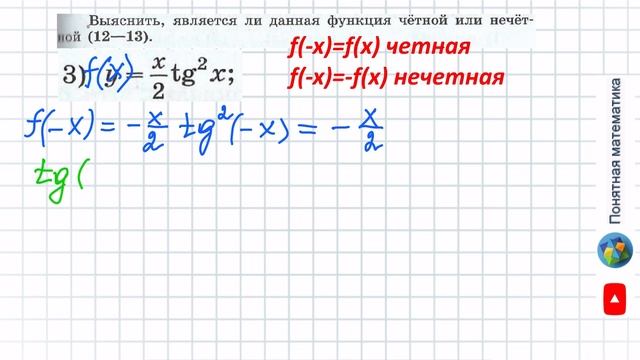 Выяснить, является ли данная функция чётной или нечёт-
ной (12—13).
f(-x)=f(x) четная
f(-x)=-f(x) нечетная
3) f(x) y = x/2 tg² x;
f(-x) = -x/2 tg²(-x) = -x/2
tg(
Понятная математика